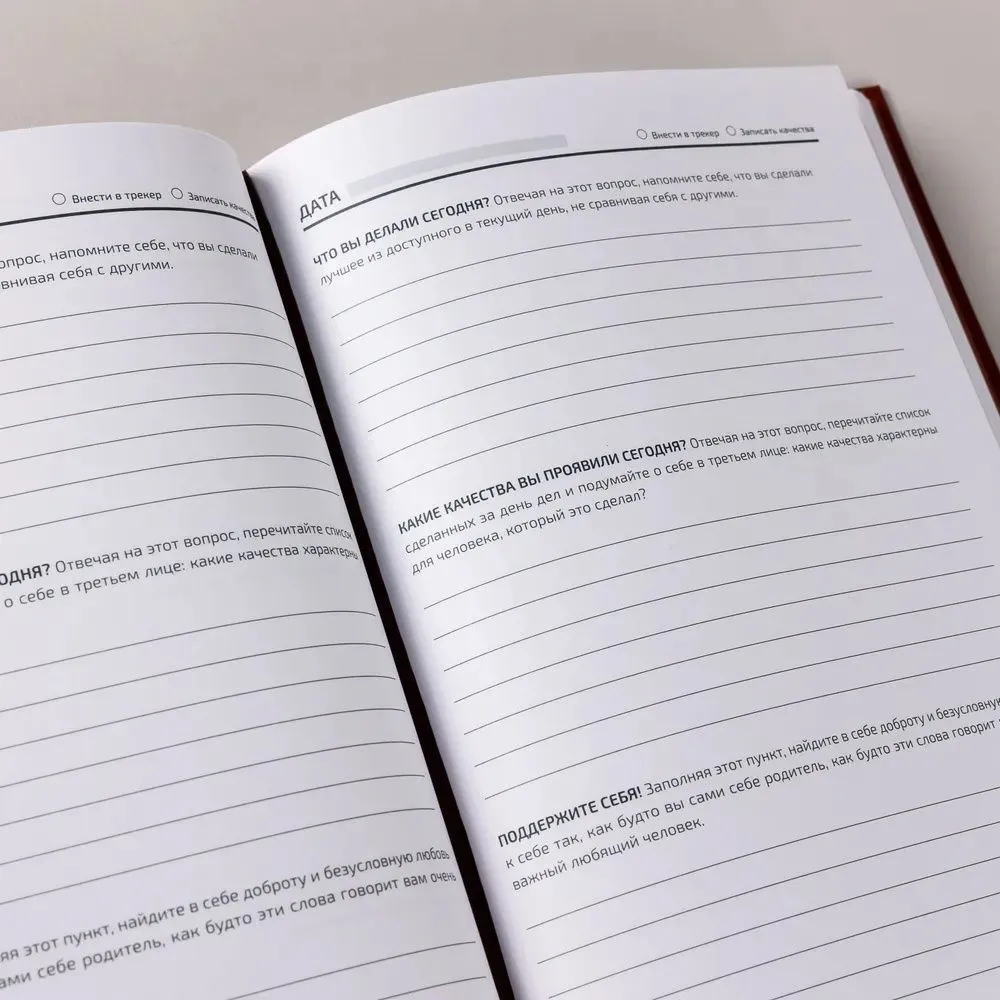 Внести в трекер Записать качества
опрос, напомните себе, что вы сделали
внивая себя с другими.
ОДНЯ? Отвечая на этот вопрос, перечитайте список
о себе в третьем лице: какие качества характерны
яя этот пункт, найдите в себе доброту и безусловную любовь
ами себе родитель, как будто эти слова говорит вам очень
Внести в трекер Записать качества
ДАТА
ЧТО ВЫ ДЕЛАЛИ СЕГОДНЯ? Отвечая на этот вопрос, напомните себе, что вы сделали
лучшее из доступного в текущий день, не сравнивая себя с другими.
КАКИЕ КАЧЕСТВА ВЫ ПРОЯВИЛИ СЕГОДНЯ? Отвечая на этот вопрос, перечитайте список
сделанных за день дел и подумайте о себе в третьем лице: какие качества характерны
для человека, который это сделал?
ПОДДЕРЖИТЕ СЕБЯ! Заполняя этот пункт, найдите в себе доброту и безусловную
к себе так, как будто вы сами себе родитель, как будто эти слова говорит
важный любящий человек.